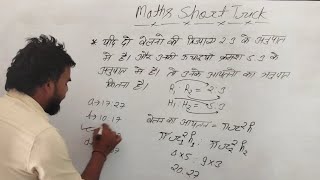 Maths Short Trick
* यदि दो बेलनों की त्रिज्याएं 2:3 के अनुपात
में है। और उनकी ऊंचाइयां क्रमशः 5:3 के
अनुपात में है। तो उनके आयतनों का अनुपात
कितना है।
R₁ : R₂ = 2:3
H₁ : H₂ = 5:3
a) 17:27
b) 10:17
बेलन का आयतन = πr²h
πr₁²h₁ : πr₂²h₂
4×5 : 9×3
20:27